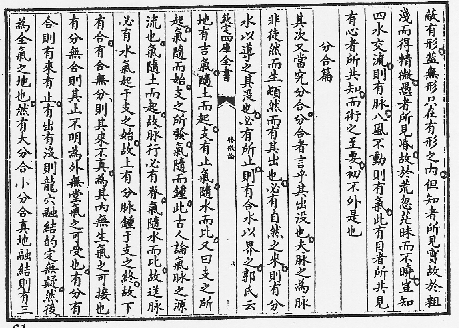 蔽有形蓋無形只在有形之內但知者所見實故於粗
淺而得精微愚者所見昏故於荒忽茫昧而不曉豈知
四水交流則有脉八風不動則有氣此有目者所共見
有心者所共知而術之至要初不外是也
分合篇
其次又當究分合分合者言乎其出没也夫脉之為脉
非徒然而生頓然而有其出也必有自然之來則有分
水以導之其没也必有所止則有合水以界之郭氏云
欽定四庫全書
發微論
地有吉氣隨土而起支有止氣隨水而比又曰支之所
起氣隨而始支之所終氣隨而鍾此古人論氣脉之源
流也氣隨土而起故脉行必有脊氣隨水而比故送脉
必有水氣起于支之始故上有分脉鍾于支之終故下
有合有合無分則其來不真為其內無生氣之可接也
有分無合則其止不明為外無堂氣之可受也有分有
合則有來有止有出有没則龍穴融結的定無疑然後
為全氣之地也然有大分合小分合真地融結則有三